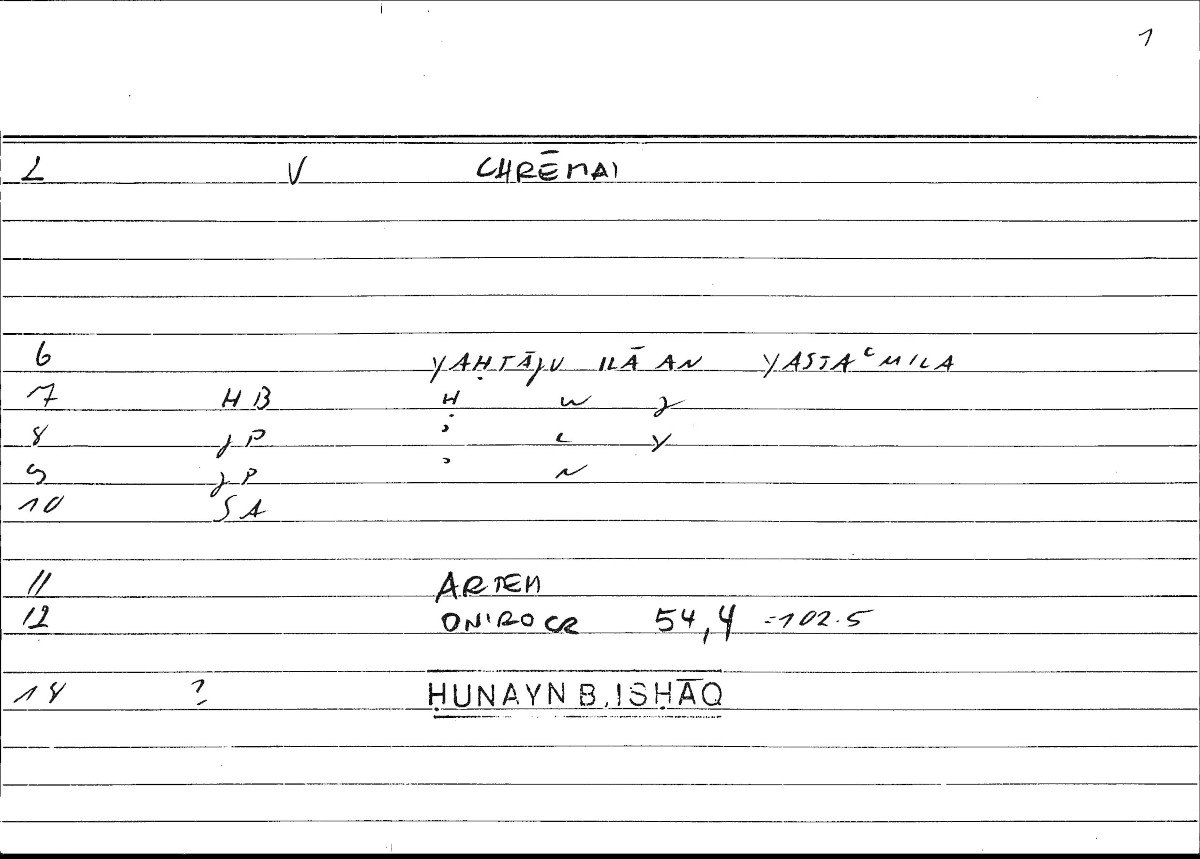 1
2 V CHRĒMAI
6 YAḤTĀJU ILĀ AN YASTAᶜMILA
7 HB Ḥ W J
8 JP ʾ L Y
9 JP ʾ N
10 SA
11 ARTEM
12 ONIROCR 54,4 =102.5
14 ? ḤUNAYN B. ISḤĀQ